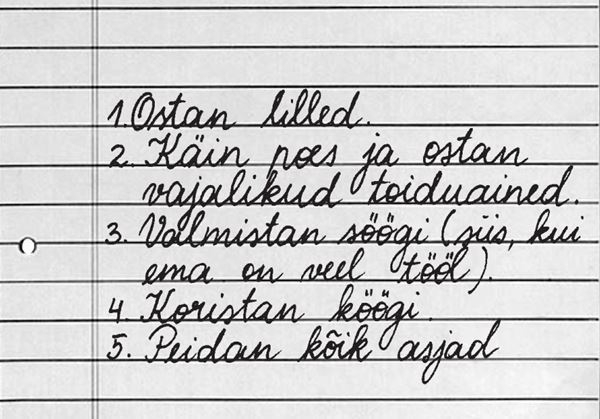 1. Ostan lilled.
2. Käin poes ja ostan
vajalikud toiduained.
3. Valmistan söögi (siis, kui
ema on veel tööl).
4. Koristan köögi.
5. Peidan kõik asjad